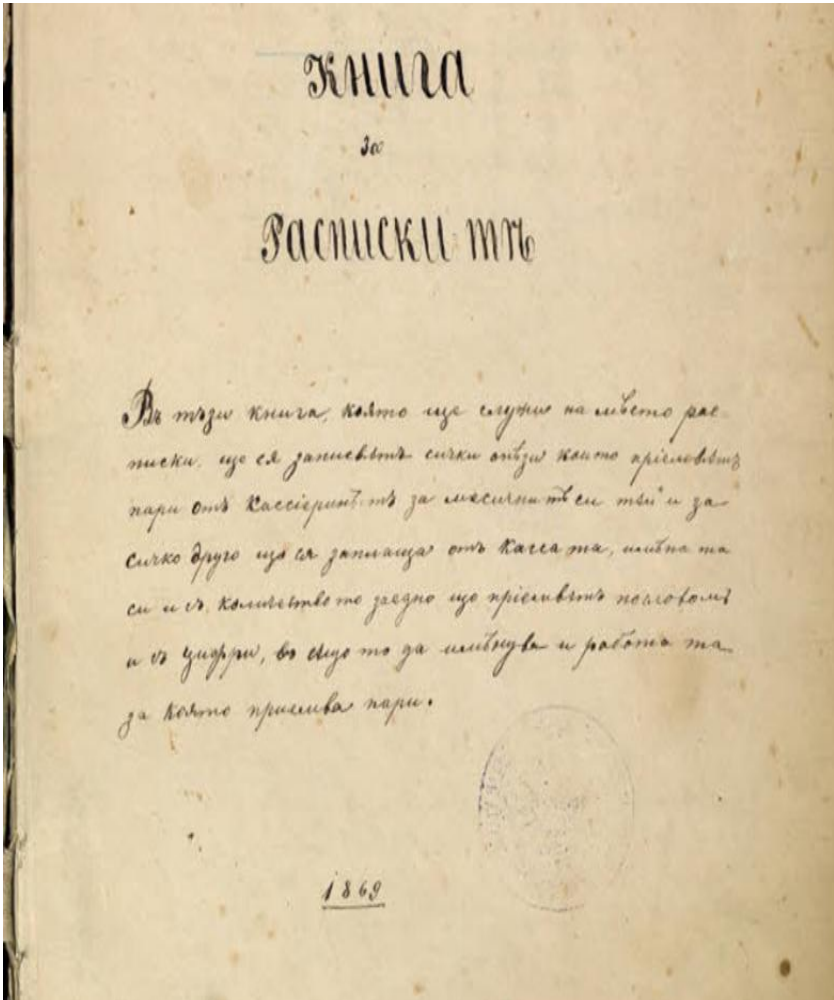 Книга
за
Расписки тѣ
Въ тъзи книга, която ще служи на мѣсто рас-
писки, ще ся записвѫтъ сички онѣзи които пріемвѫтъ
пари отъ Кассіеринътъ за месячни тѣ си и за
сичко друго що ся заплаща отъ Касса та, имѣна та
си и съ количество то заедно що пріемвѫтъ
и съ цифри, въ също то да имѣнува и работа та
за която приемва пари.
1869